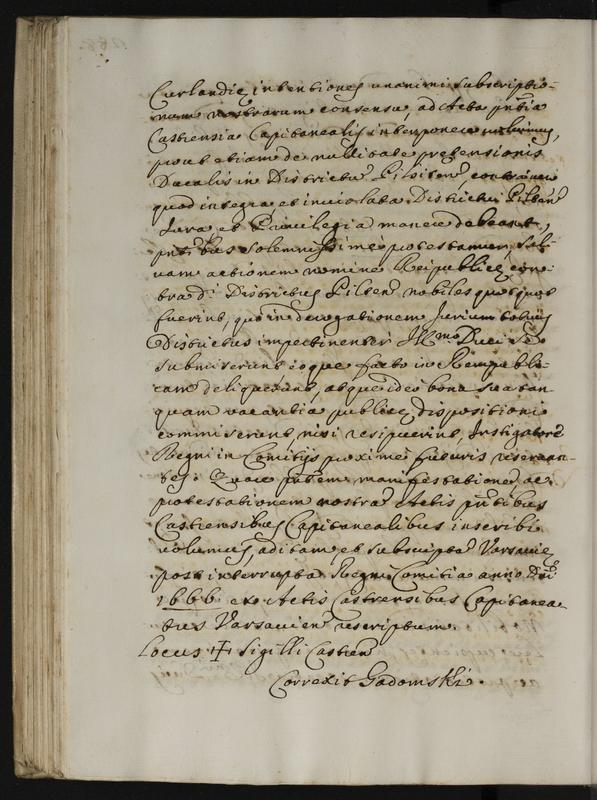 Curlandię intentioneş unanimi subscriptio-
num nostrarum consensu, ad Acta pñtia
Castrensia Capitanealia interponere volumus,
prout etiam de nullitate prętensionis
Ducalis in Districtu Piltenẽ contra
quod integra et inviolata Districtus Piltenẽ
Jura et Privilegia manere debeant,
pñtibus solemnissime protestamur, sal-
vam actionem nomine Reipublicę con-
tra d: Districtus Pilten nobiles quotquot
fuerint, qui in derogationem jurium totius
Districtus impertinenter Illmo Duci se
submiserunt, eoque facto in Rempubli-
cam deliquerunt, atque ideo bona sua tan-
quam vacantia publicę dispositioni
commiserunt, nisi resipuerint, Instigatorẽ
Regni in Comitijs proximè futuris reservan-
tes. Quam pñtem manifestationem ac
protestationem nostrã Actis pñtibus
Castrensibus Capitanealibus inscribi
volumus, ad itam et subscriptã Varsavię
post interrupta Regni Comitia anno Dñi
1666 ex Actis Castrensibus Capitanea-
libus Varsavien rescriptum.
Locus ✠ Sigilli Castren
Correxit Gadomski.